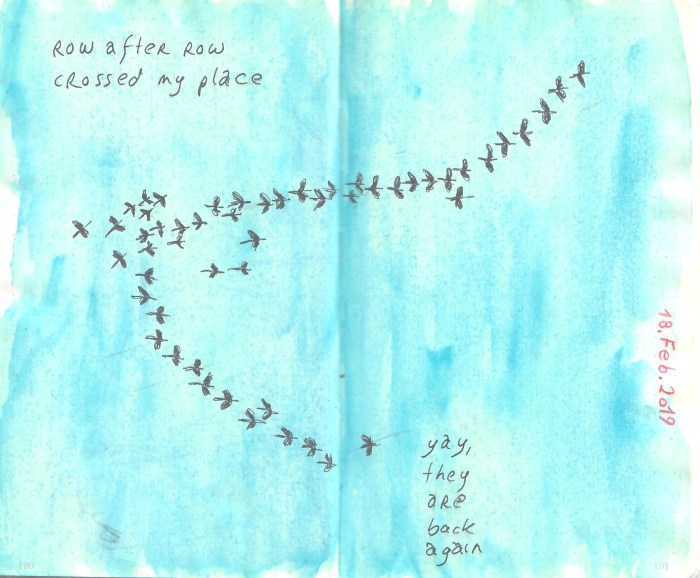 Row after Row
cRossed my place
18. Feb. 2019
yay,
they
aRe
back
again
100
101